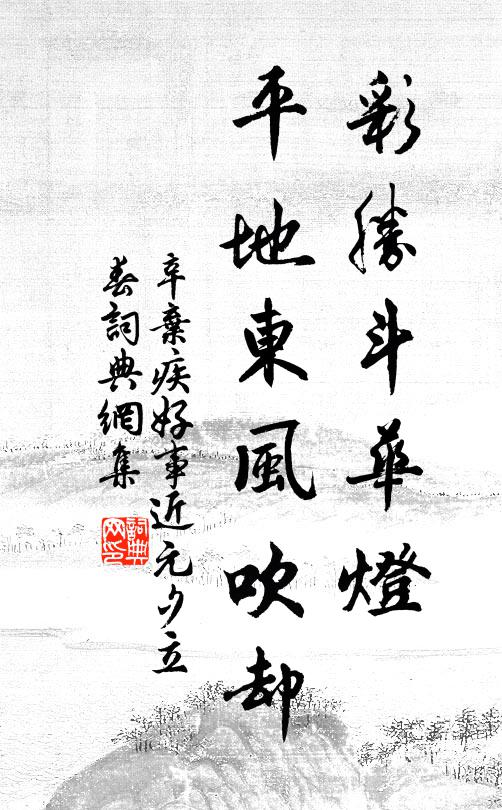 彩勝斗華燈
平地東風吹却
辛棄疾好事近元夕立
春詞典網集
詞典
网印